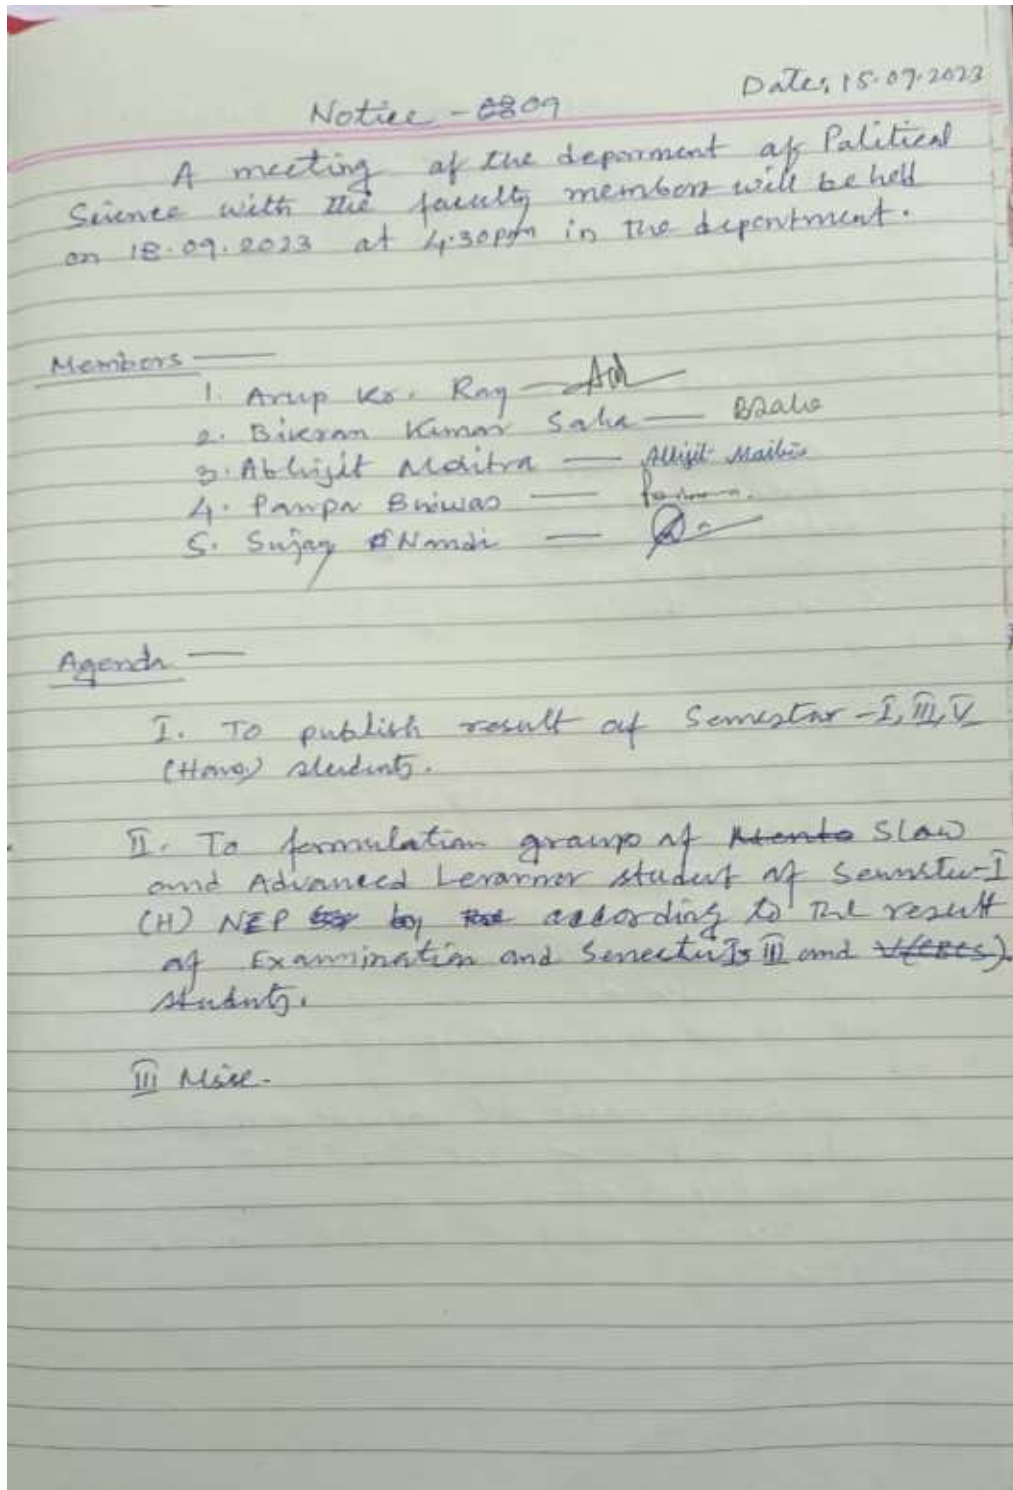 Date: 15.09.2023
Notice - 0809
A meeting of the deparment of Palitical
Science with the faculty members will be held
on 18.09.2023 at 4.30pm in the department.
Members —
1. Arup Kr. Ray —
2. Bikram Kumar Saha — BSaha
3. Abhijit Moitra — Abhijit Maitra
4. Pampa Biswas —
5. Sujay Nandi —
Agenda —
I. To publish result of Semestar - I, III, V
(Hons) students.
II. To formulation groups of Slow
and Advanced Lerarnor student of Semester-I
(H) NEP by according to the result
of Examination and Semester I, III and V(CBCS).
students.
III Misc.